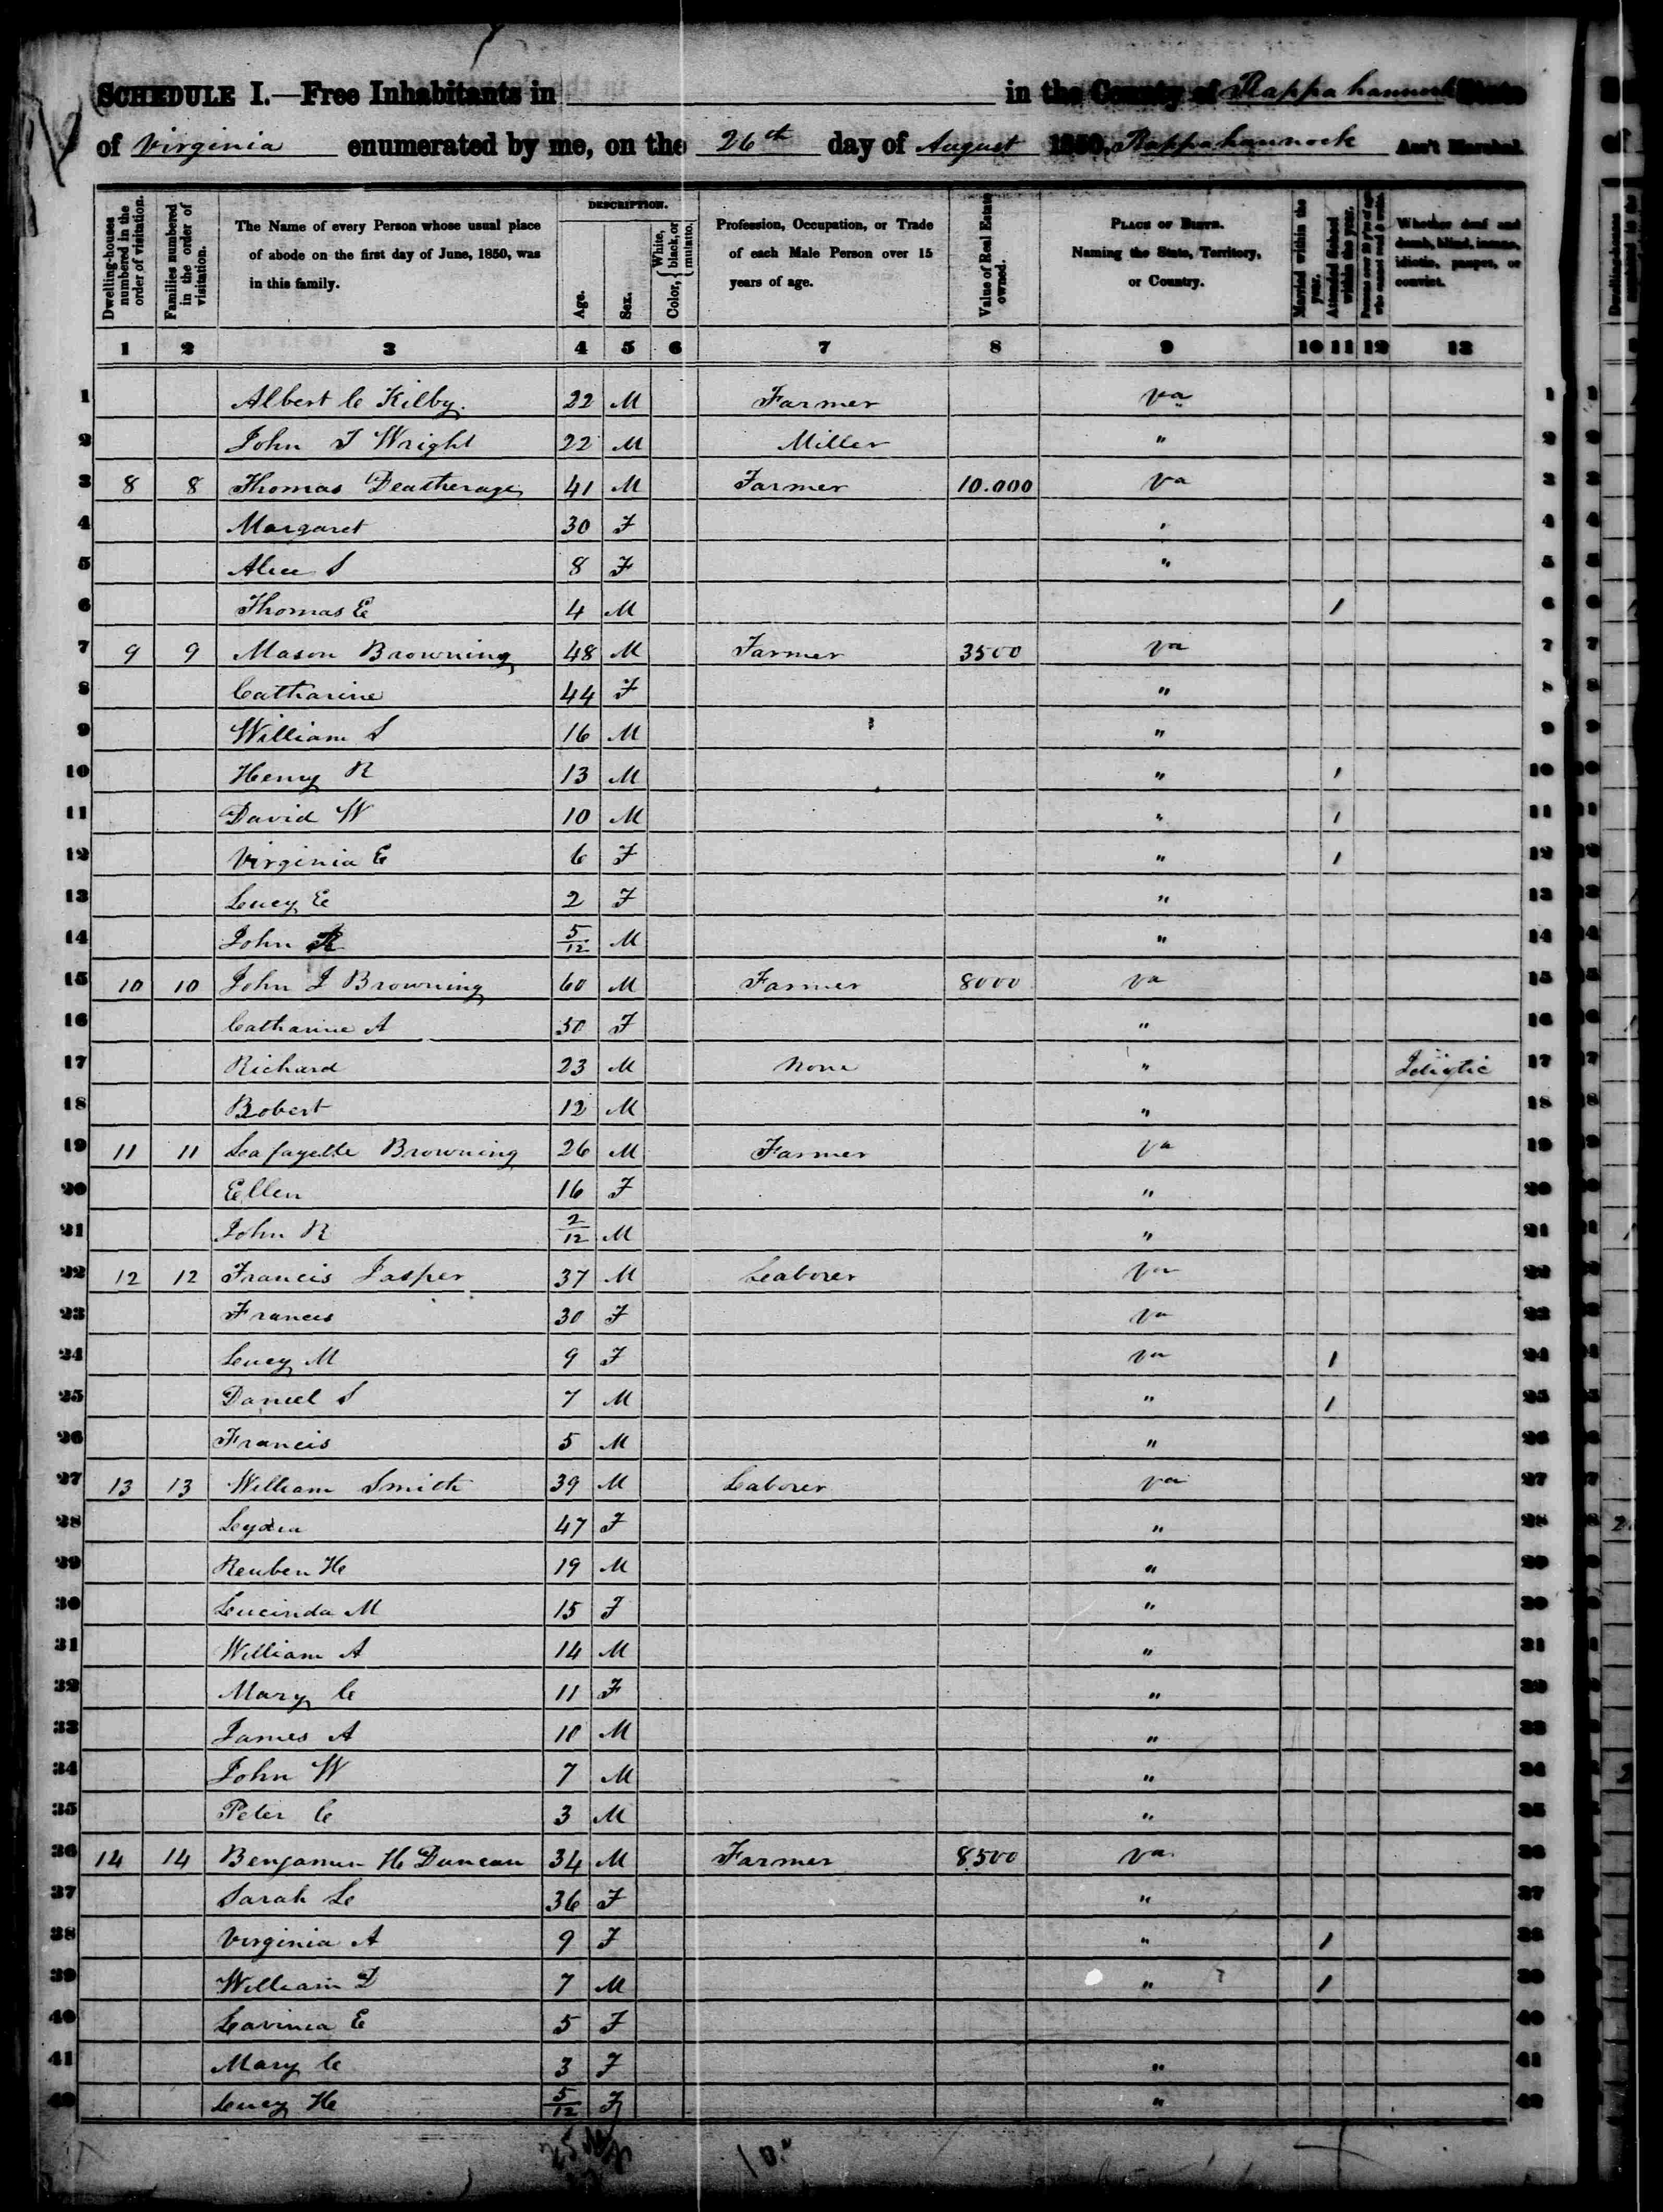 SCHEDULE I.—Free Inhabitants in in the County of Rappahannock State
of Virginia enumerated by me, on the 26th day of August 1850, Rappahannock Ass't Marshal.
Dwelling-houses numbered in the order of visitation.
Families numbered in the order of visitation.
The Name of every Person whose usual place of abode on the first day of June, 1850, was in this family.
DESCRIPTION.
Age.
Sex.
Color, { White, black, or mulatto.
Profession, Occupation, or Trade of each Male Person over 15 years of age.
Value of Real Estate owned.
PLACE OF BIRTH. Naming the State, Territory, or Country.
Married within the year.
Attended School within the year.
Persons over 20 y'rs of age who cannot read & write.
Whether deaf and dumb, blind, insane, idiotic, pauper, or convict.
1 2 3 4 5 6 7 8 9 10 11 12 13
1 Albert C Kilby 22 M Farmer Va 1
2 John T Wright 22 M Miller " 2
3 8 8 Thomas Deatherage 41 M Farmer 10.000 Va 3
4 Margaret 30 F " 4
5 Alice S 8 F " 5
6 Thomas E 4 M / 6
7 9 9 Mason Browning 48 M Farmer 3500 Va 7
8 Catharine 44 F " 8
9 William S 16 M " 9
10 Henry R 13 M " / 10
11 David W 10 M " / 11
12 Virginia E 6 F " / 12
13 Lucy E 2 F " 13
14 John R 5/12 M " 14
15 10 10 John J Browning 60 M Farmer 8000 Va 15
16 Catharine A 50 F " 16
17 Richard 23 M None " Idiotic 17
18 Robert 12 M " 18
19 11 11 Lafayette Browning 26 M Farmer Va 19
20 Ellen 16 F " 20
21 John R 2/12 M " 21
22 12 12 Francis Jasper 37 M Leaborer Va 22
23 Frances 30 F Va 23
24 Lucy M 9 F Va / 24
25 Daniel S 7 M " / 25
26 Francis 5 M " 26
27 13 13 William Smith 39 M Laborer Va 27
28 Lydia 47 F " 28
29 Reuben H 19 M " 29
30 Lucinda M 15 F " 30
31 William A 14 M " 31
32 Mary C 11 F " 32
33 James A 10 M " 33
34 John W 7 M " 34
35 Peter C 3 M " 35
36 14 14 Benjamin H Duncan 34 M Farmer 8500 Va 36
37 Sarah L 36 F " 37
38 Virginia A 9 F " / 38
39 William D 7 M " / 39
40 Lavinia E 5 F 40
41 Mary C 3 F " 41
42 Lucy H 5/12 F " 42